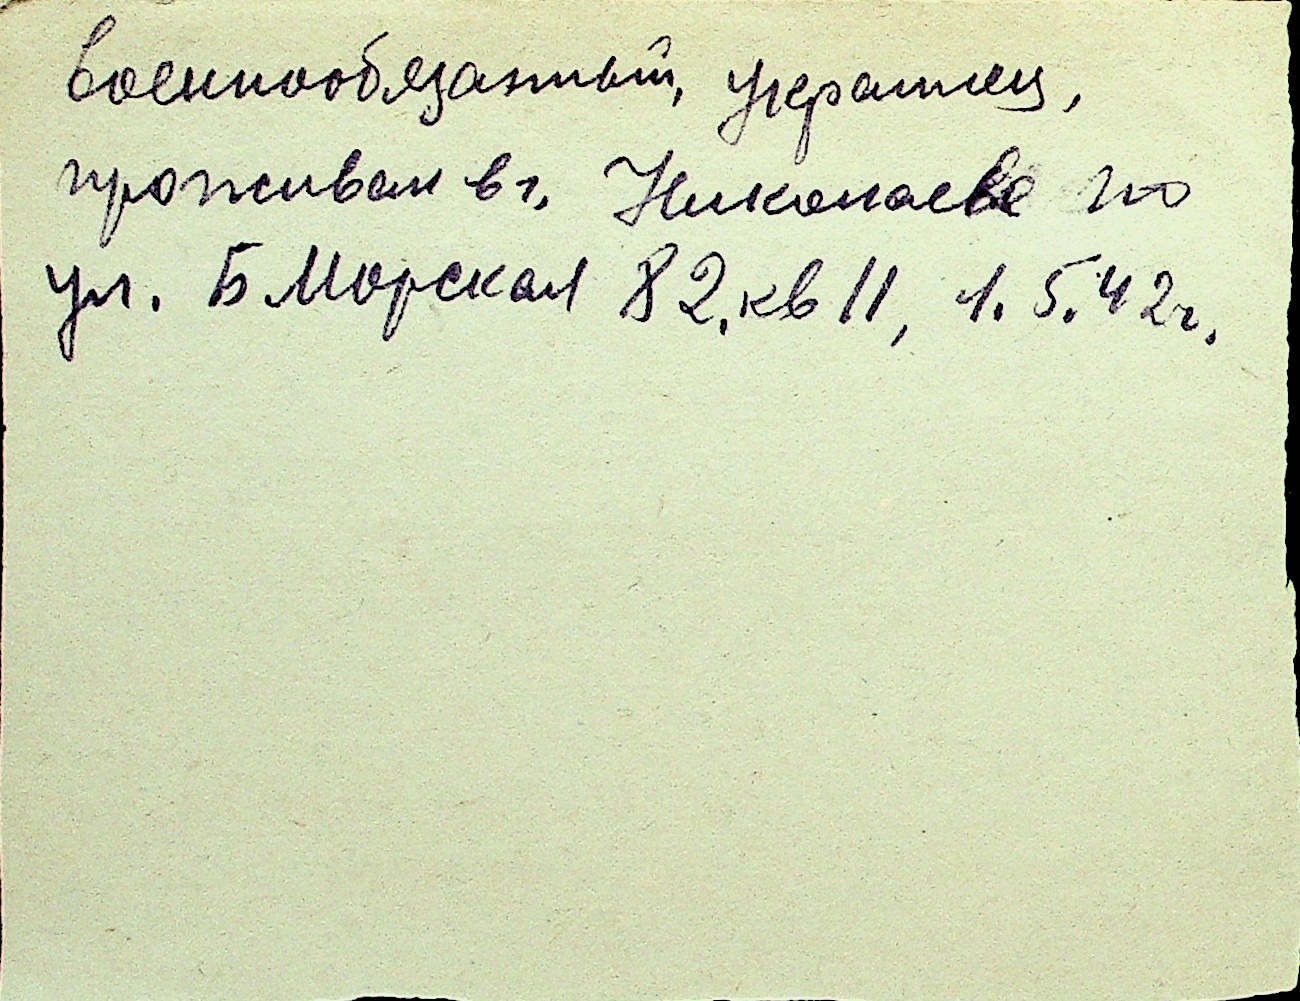 военнообязанный, украинец,
проживал в г. Николаеве по
ул. Б Морская 82, кв 11, 1.5.42г.